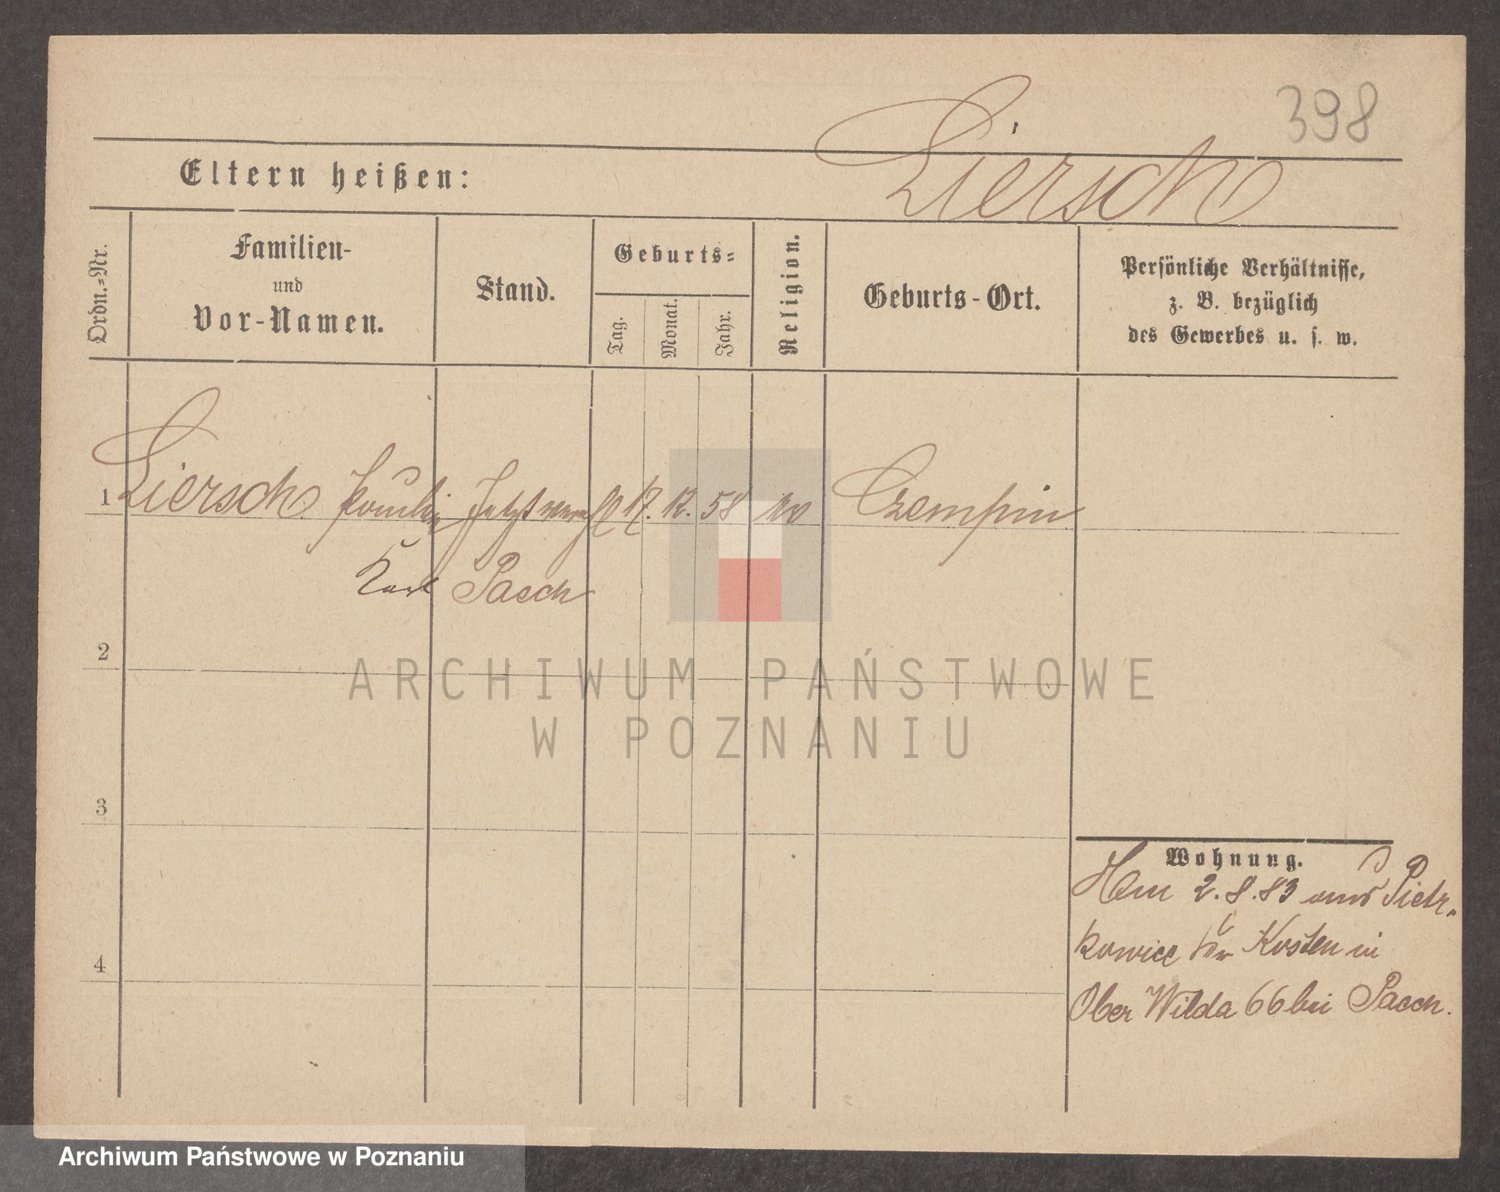 398
Liersch
Eltern heißen:
Ordn.-Nr.
Familien-
und
Vor-Namen.
Stand.
Geburts-
Tag.
Monat.
Jahr.
Religion.
Geburts-Ort.
Persönliche Verhältnisse,
z. B. bezüglich
des Gewerbes u. s. w.
1 Liersch Paulin 12. 58 Czempin
Karl Pasch
2
3
4
Wohnung.
2.8.83 aus Pietr-
kowice Kr Kosten in
Ober Wilda 66 bei Pasch.
ARCHIWUM PAŃSTWOWE
W POZNANIU
Archiwum Państwowe w Poznaniu